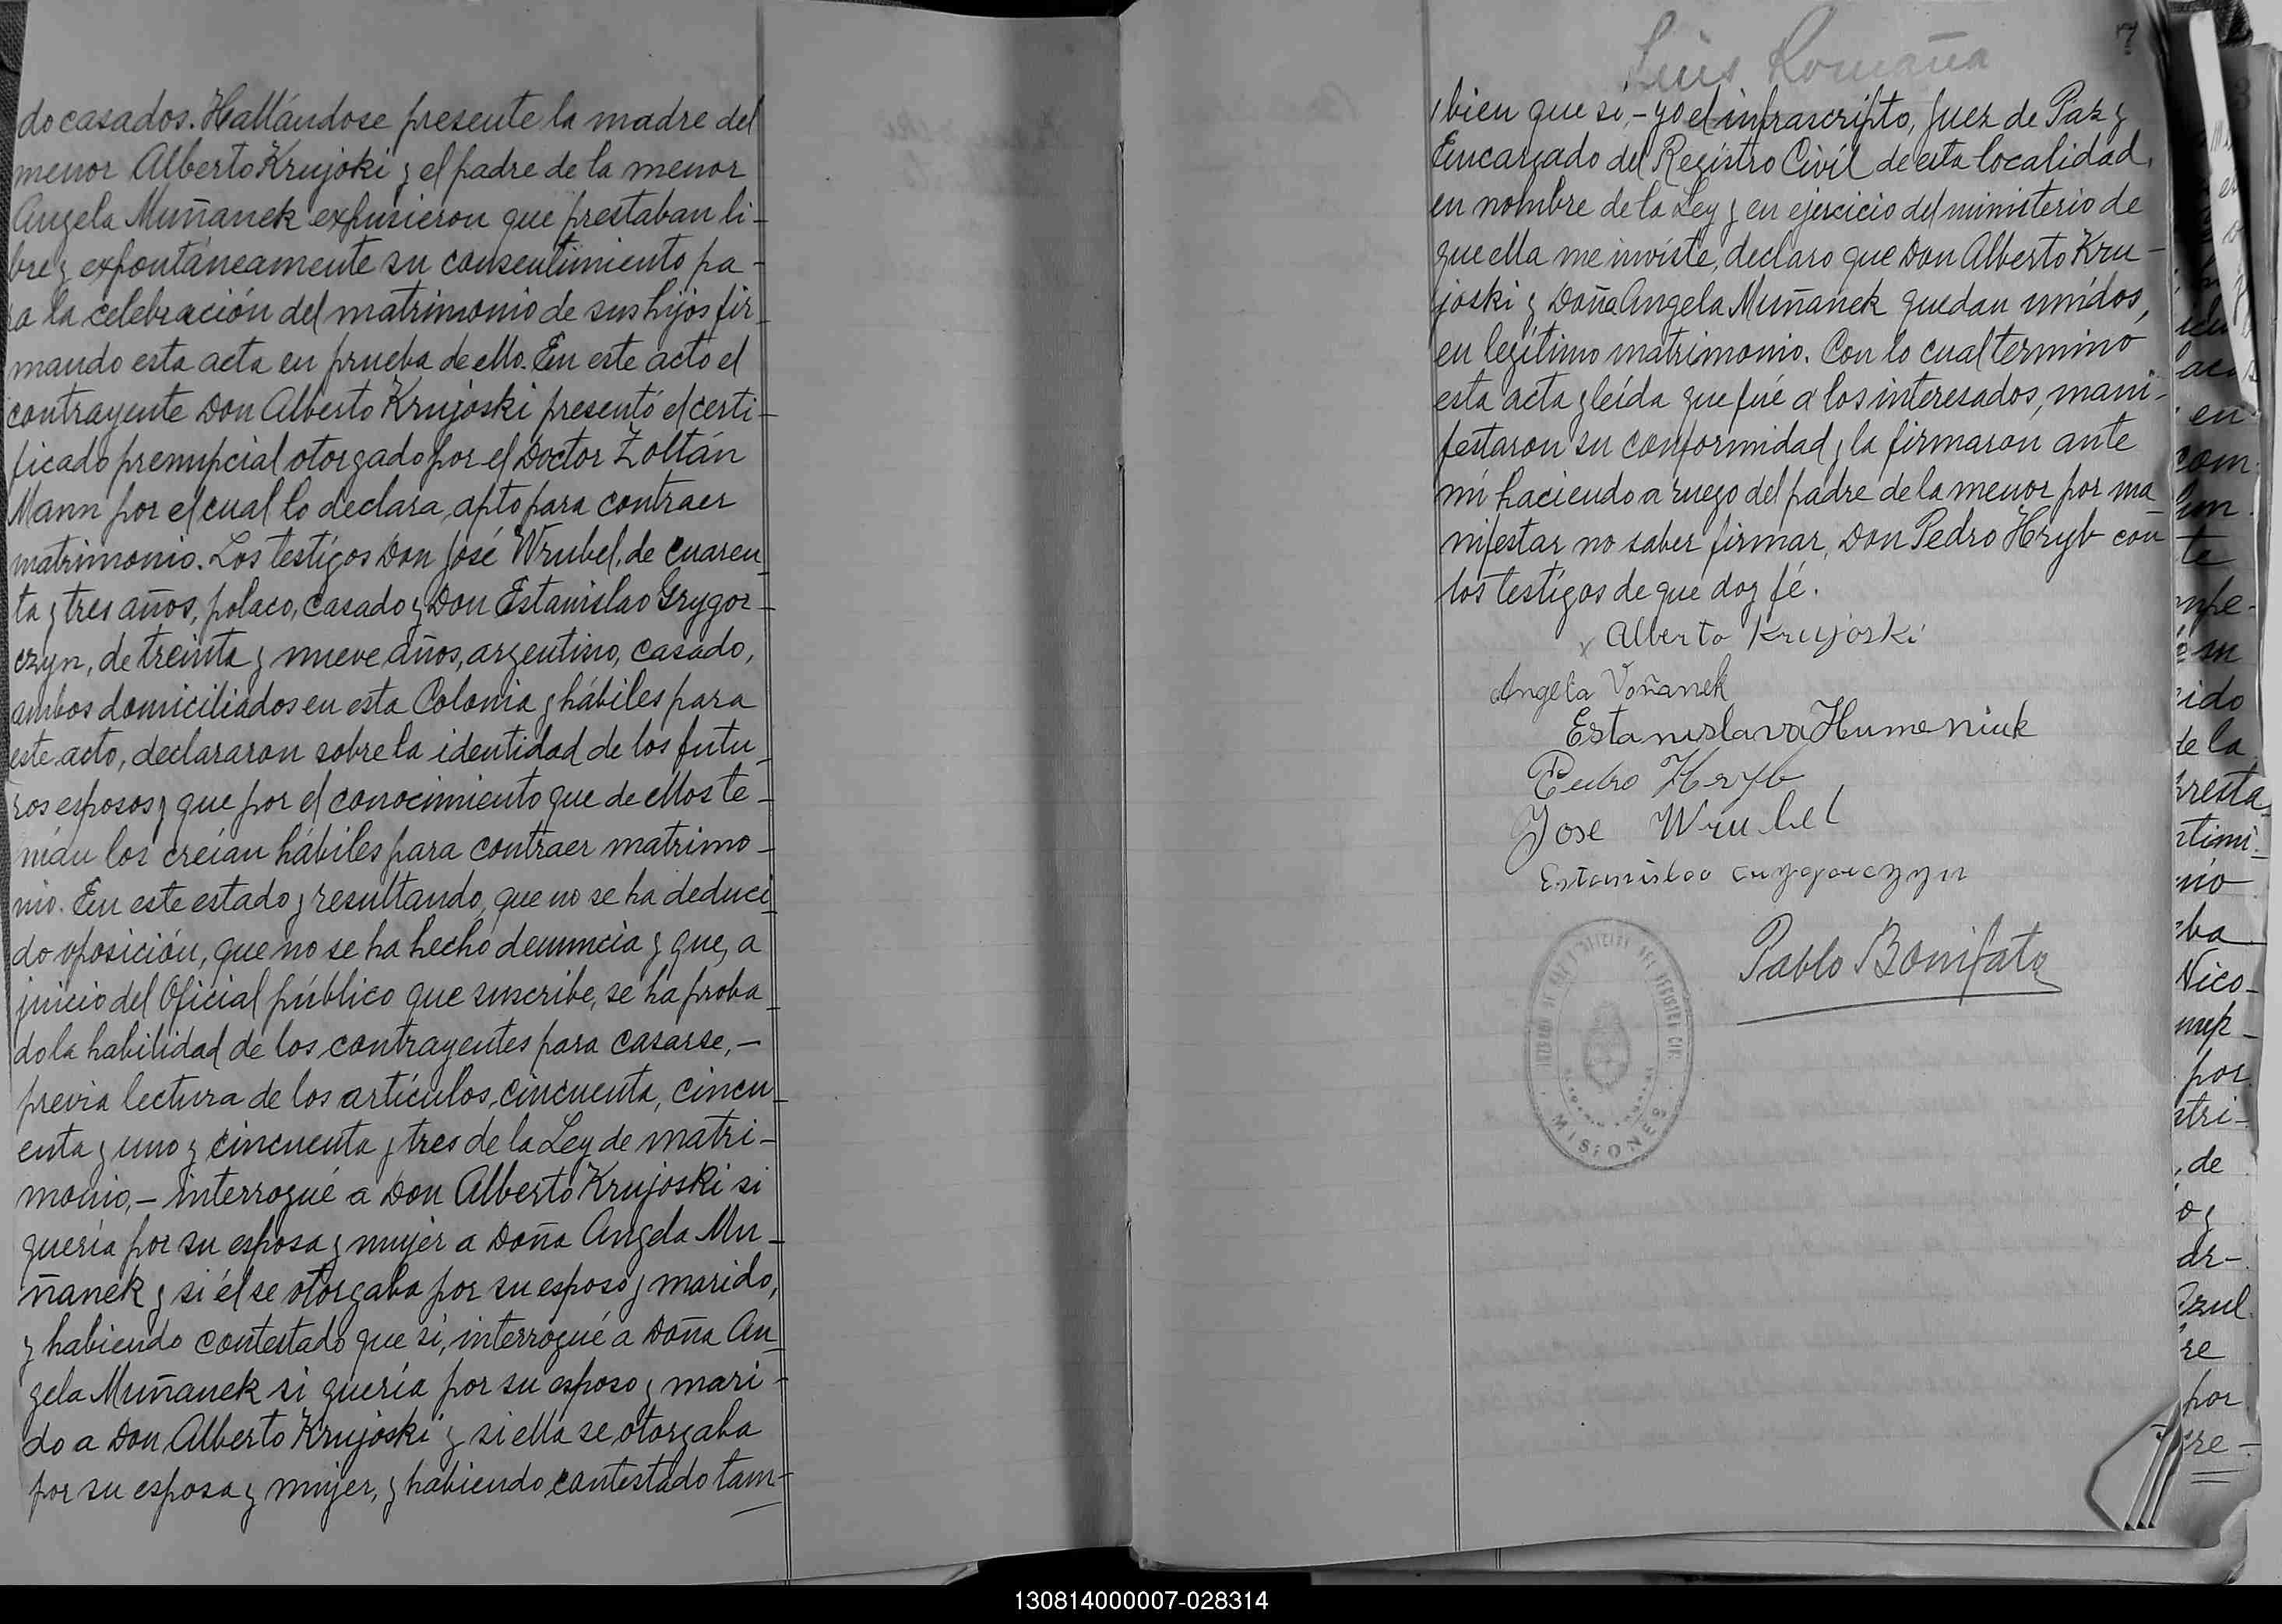 do casados. Hallándose presente la madre del
menor Alberto Krujoki y el padre de la menor
Angela Muñanek expusieron que prestaban li-
bre y expontáneamente su consentimiento pa-
ra la celebración del matrimonio de sus hijos fir-
mando esta acta en prueba de ello. En este acto el
contrayente Don Alberto Krujoski presentó el certi-
ficado prenupcial otorgado por el Doctor Zoltán
Mann por el cual lo declara apto para contraer
matrimonio. Los testigos Don José Wrubel, de cuaren-
ta y tres años, polaco, casado y Don Estanislao Grygor-
czyn, de treinta y nueve años, argentino, casado,
ambos domiciliados en esta Colonia y hábiles para
este acto, declararon sobre la identidad de los futu-
ros esposos y que por el conocimiento que de ellos te-
nían los creían hábiles para contraer matrimo-
nio. En este estado y resultando, que no se ha deduci-
do oposición, que no se ha hecho denuncia y que, a
juicio del Oficial público que suscribe, se ha proba-
do la habilidad de los contrayentes para casarse, -
previa lectura de los artículos, cincuenta, cincu-
enta y uno y cincuenta y tres de la Ley de matri-
monio, - interrogué a Don Alberto Krujoski si
quería por su esposa y mujer a Doña Angela Mu-
ñanek y si él se otorgaba por su esposo y marido,
y habiendo contestado que si, interrogué a Doña An-
gela Muñanek si quería por su esposo y mari-
do a Don Alberto Krujoski y si ella se otorgaba
por su esposa y mujer, y habiendo contestado tam-
Luis Romaña
7
bien que si, - yo el infrascripto, Juez de Paz y
Encargado del Registro Civil de esta localidad,
en nombre de la Ley y en ejercicio del ministerio de
que ella me inviste, declaro que Don Alberto Kru-
joski y Doña Angela Muñanek quedan unidos,
en legítimo matrimonio. Con lo cual terminó
esta acta y leída que fué a los interesados, mani-
festaron su conformidad y la firmaron ante
mi haciendo a ruego del padre de la menor por ma
nifestar no saber firmar, Don Pedro Hryb con
los testigos de que doy fé.
x Alberto Krujoski
Angela Voñanek
Estanislava Humeniuk
Pedro Hryb
Jose Wrubel
Estanislao
Pablo Bonifato
MISIONES
en
com
te
su
ido
de la
presta
timi-
nio
ba
Nico-
nup-
por
tri-
, de
o y
ar-
Azul
re
por
re-
130814000007-028314